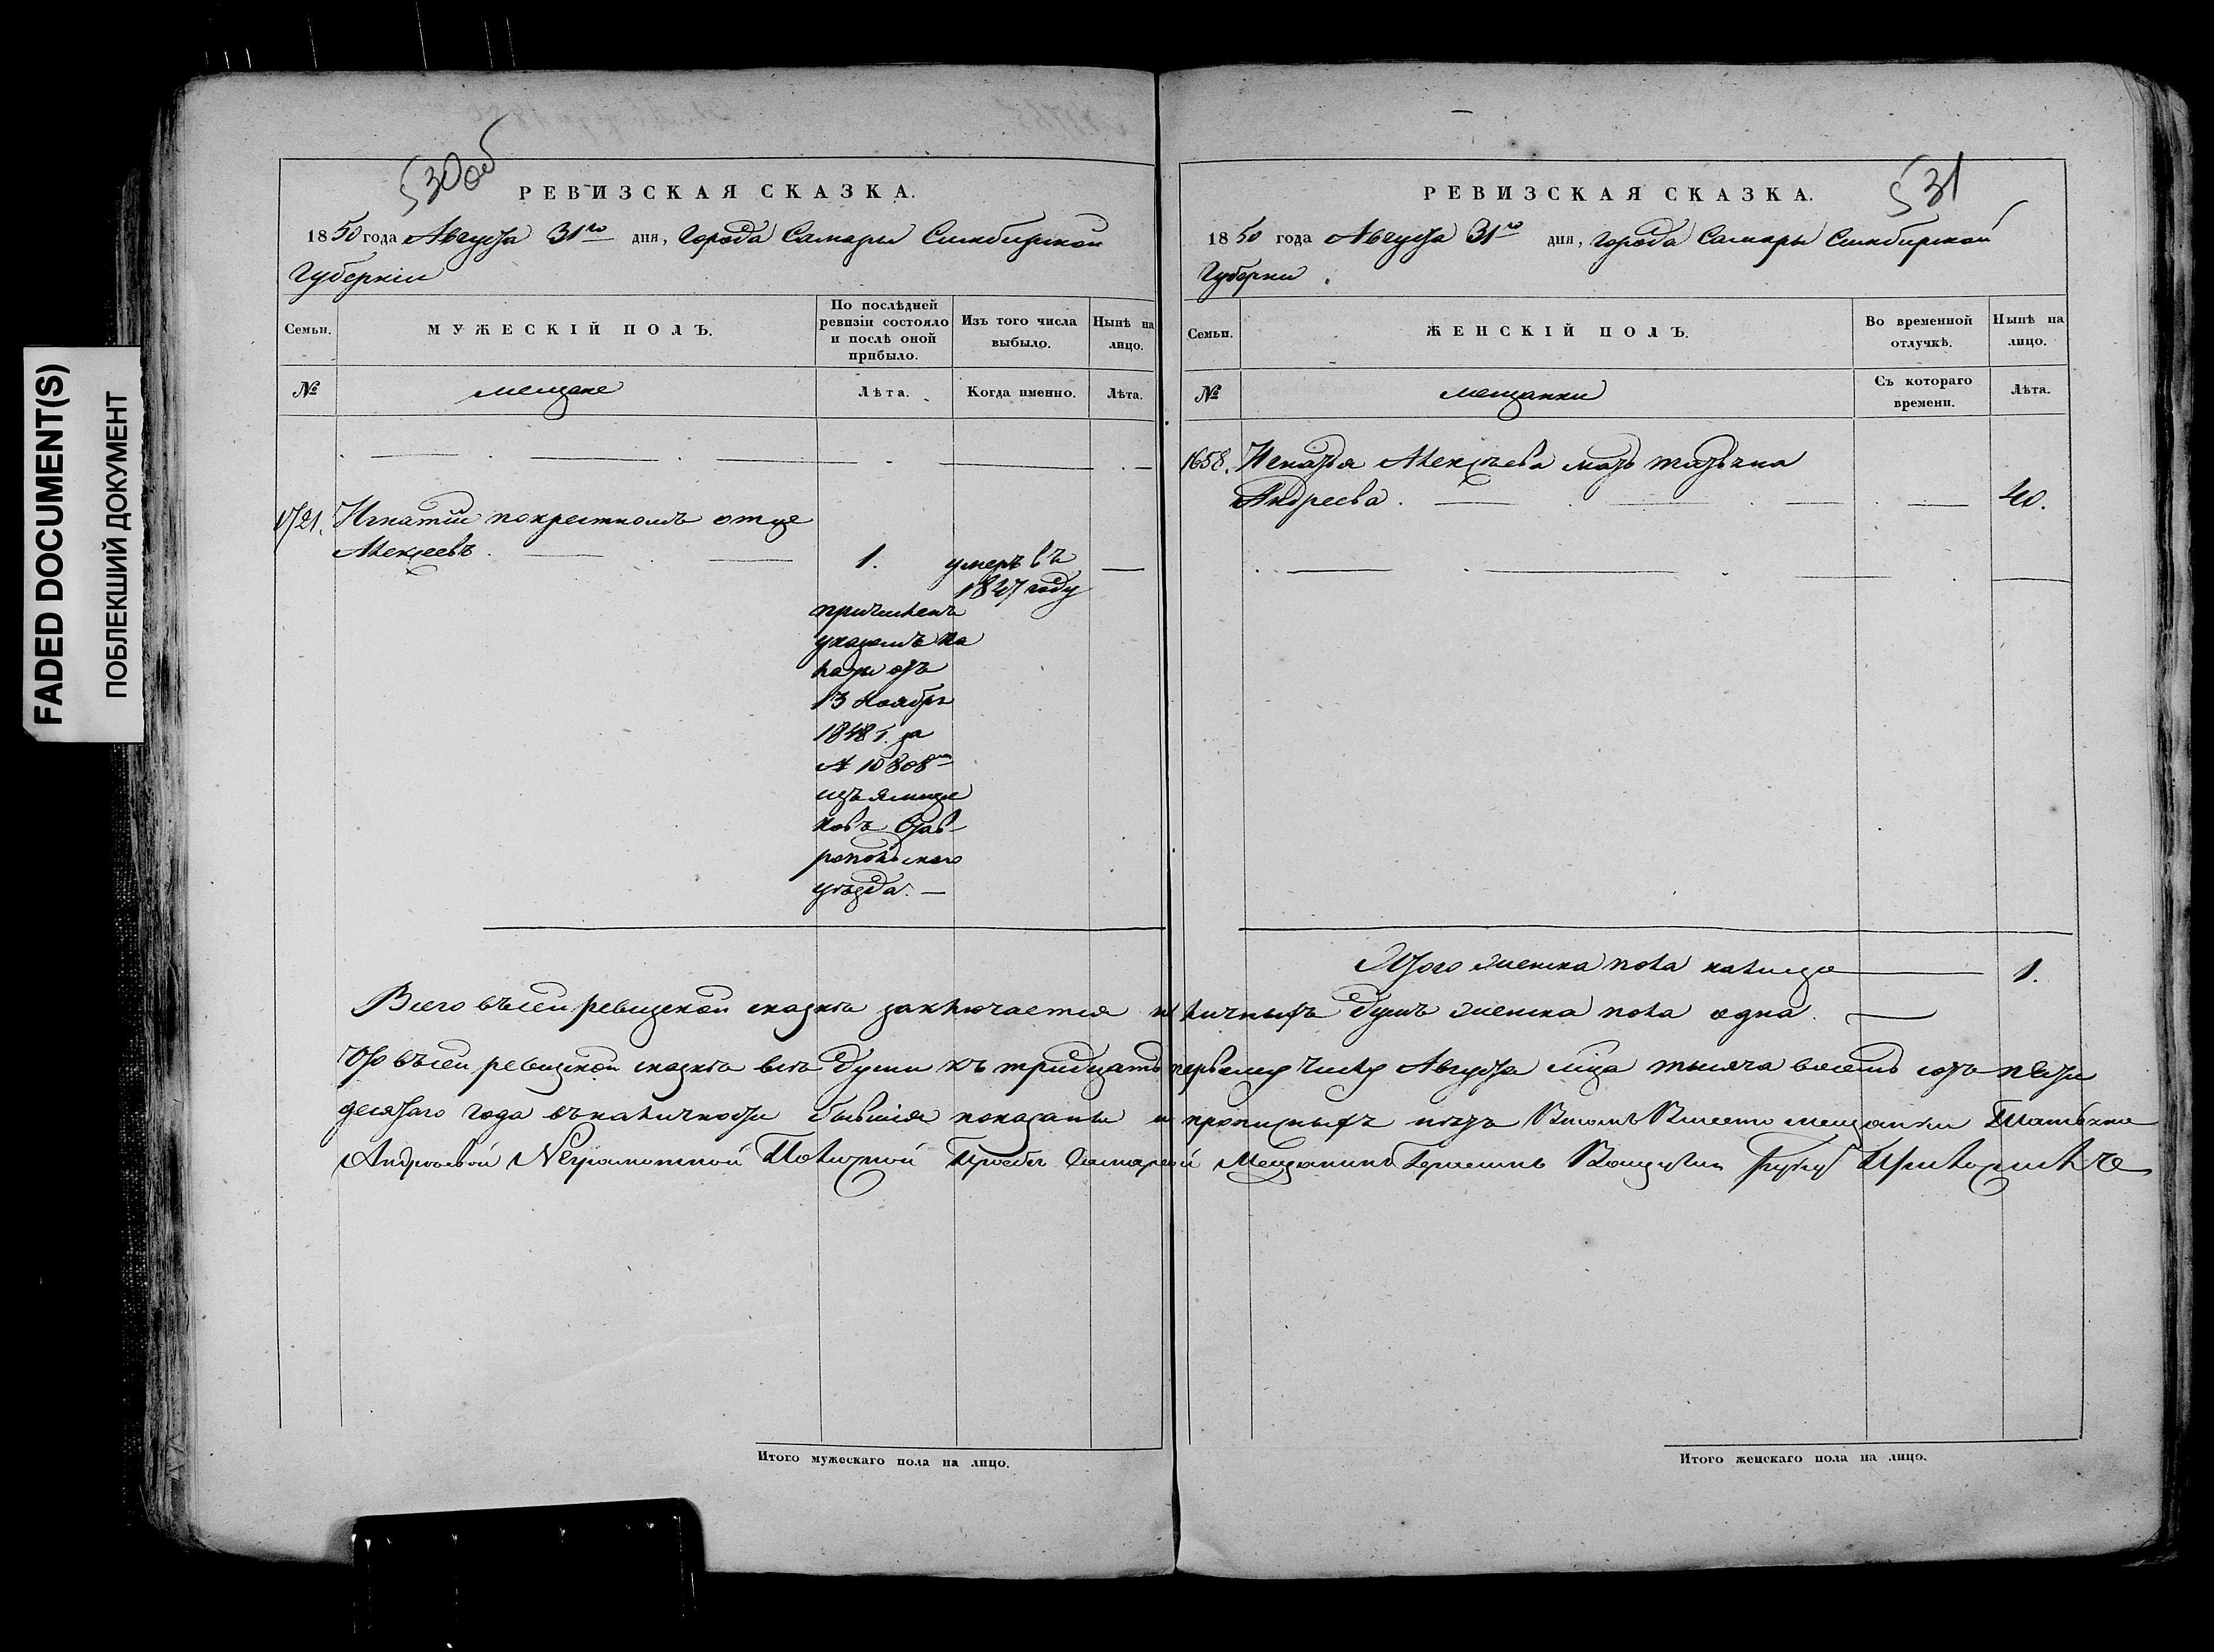 FADED DOCUMENT(S)
ПОБЛЕКШИЙ ДОКУМЕНТ
530об
РЕВИЗСКАЯ СКАЗКА.
1850 года Августа 31го дня, Города Самары Симбирской
Губернiи
Семьи.
МУЖЕСКІЙ ПОЛЪ.
По послѣдней ревизіи состояло и послѣ оной прибыло.
Изъ того числа выбыло.
Нынѣ на лицо.
№
мещане
Лѣта.
Когда именно.
Лѣта.
1721. Игнатiй по крестномъ отце
Алексеевъ
1.
умеръ въ
1847 году
причисленъ
указомъ Ка
1848 г. за
№ 10808м
изъ ямщи
ковъ Став
ропольскаго
уѣзда. —
531
РЕВИЗСКАЯ СКАЗКА.
1850 года Августа 31го дня, города Самары Симбирской
Губернии
Семьи.
ЖЕНСКІЙ ПОЛЪ.
Во временной отлучкѣ.
Нынѣ на лицо.
№
мещанки
Съ котораго времени.
Лѣта.
1658. Игнатья Алексѣева мать
Андреева.
40.
Итого женска пола налицо 1.
Всего въ сей ревизской сказкѣ заключается наличныхъ душъ женска пола одна.
Что въ сей ревизской сказкѣ всѣ души къ тридцать первому числу Августа мца тысяча восемь сотъ пяти
десятаго года въ наличности бывшiя показаны и прописныхъ нѣтъ мещанки
Андреевой Неграмотной
Итого мужескаго пола на лицо.
Итого женскаго пола на лицо.